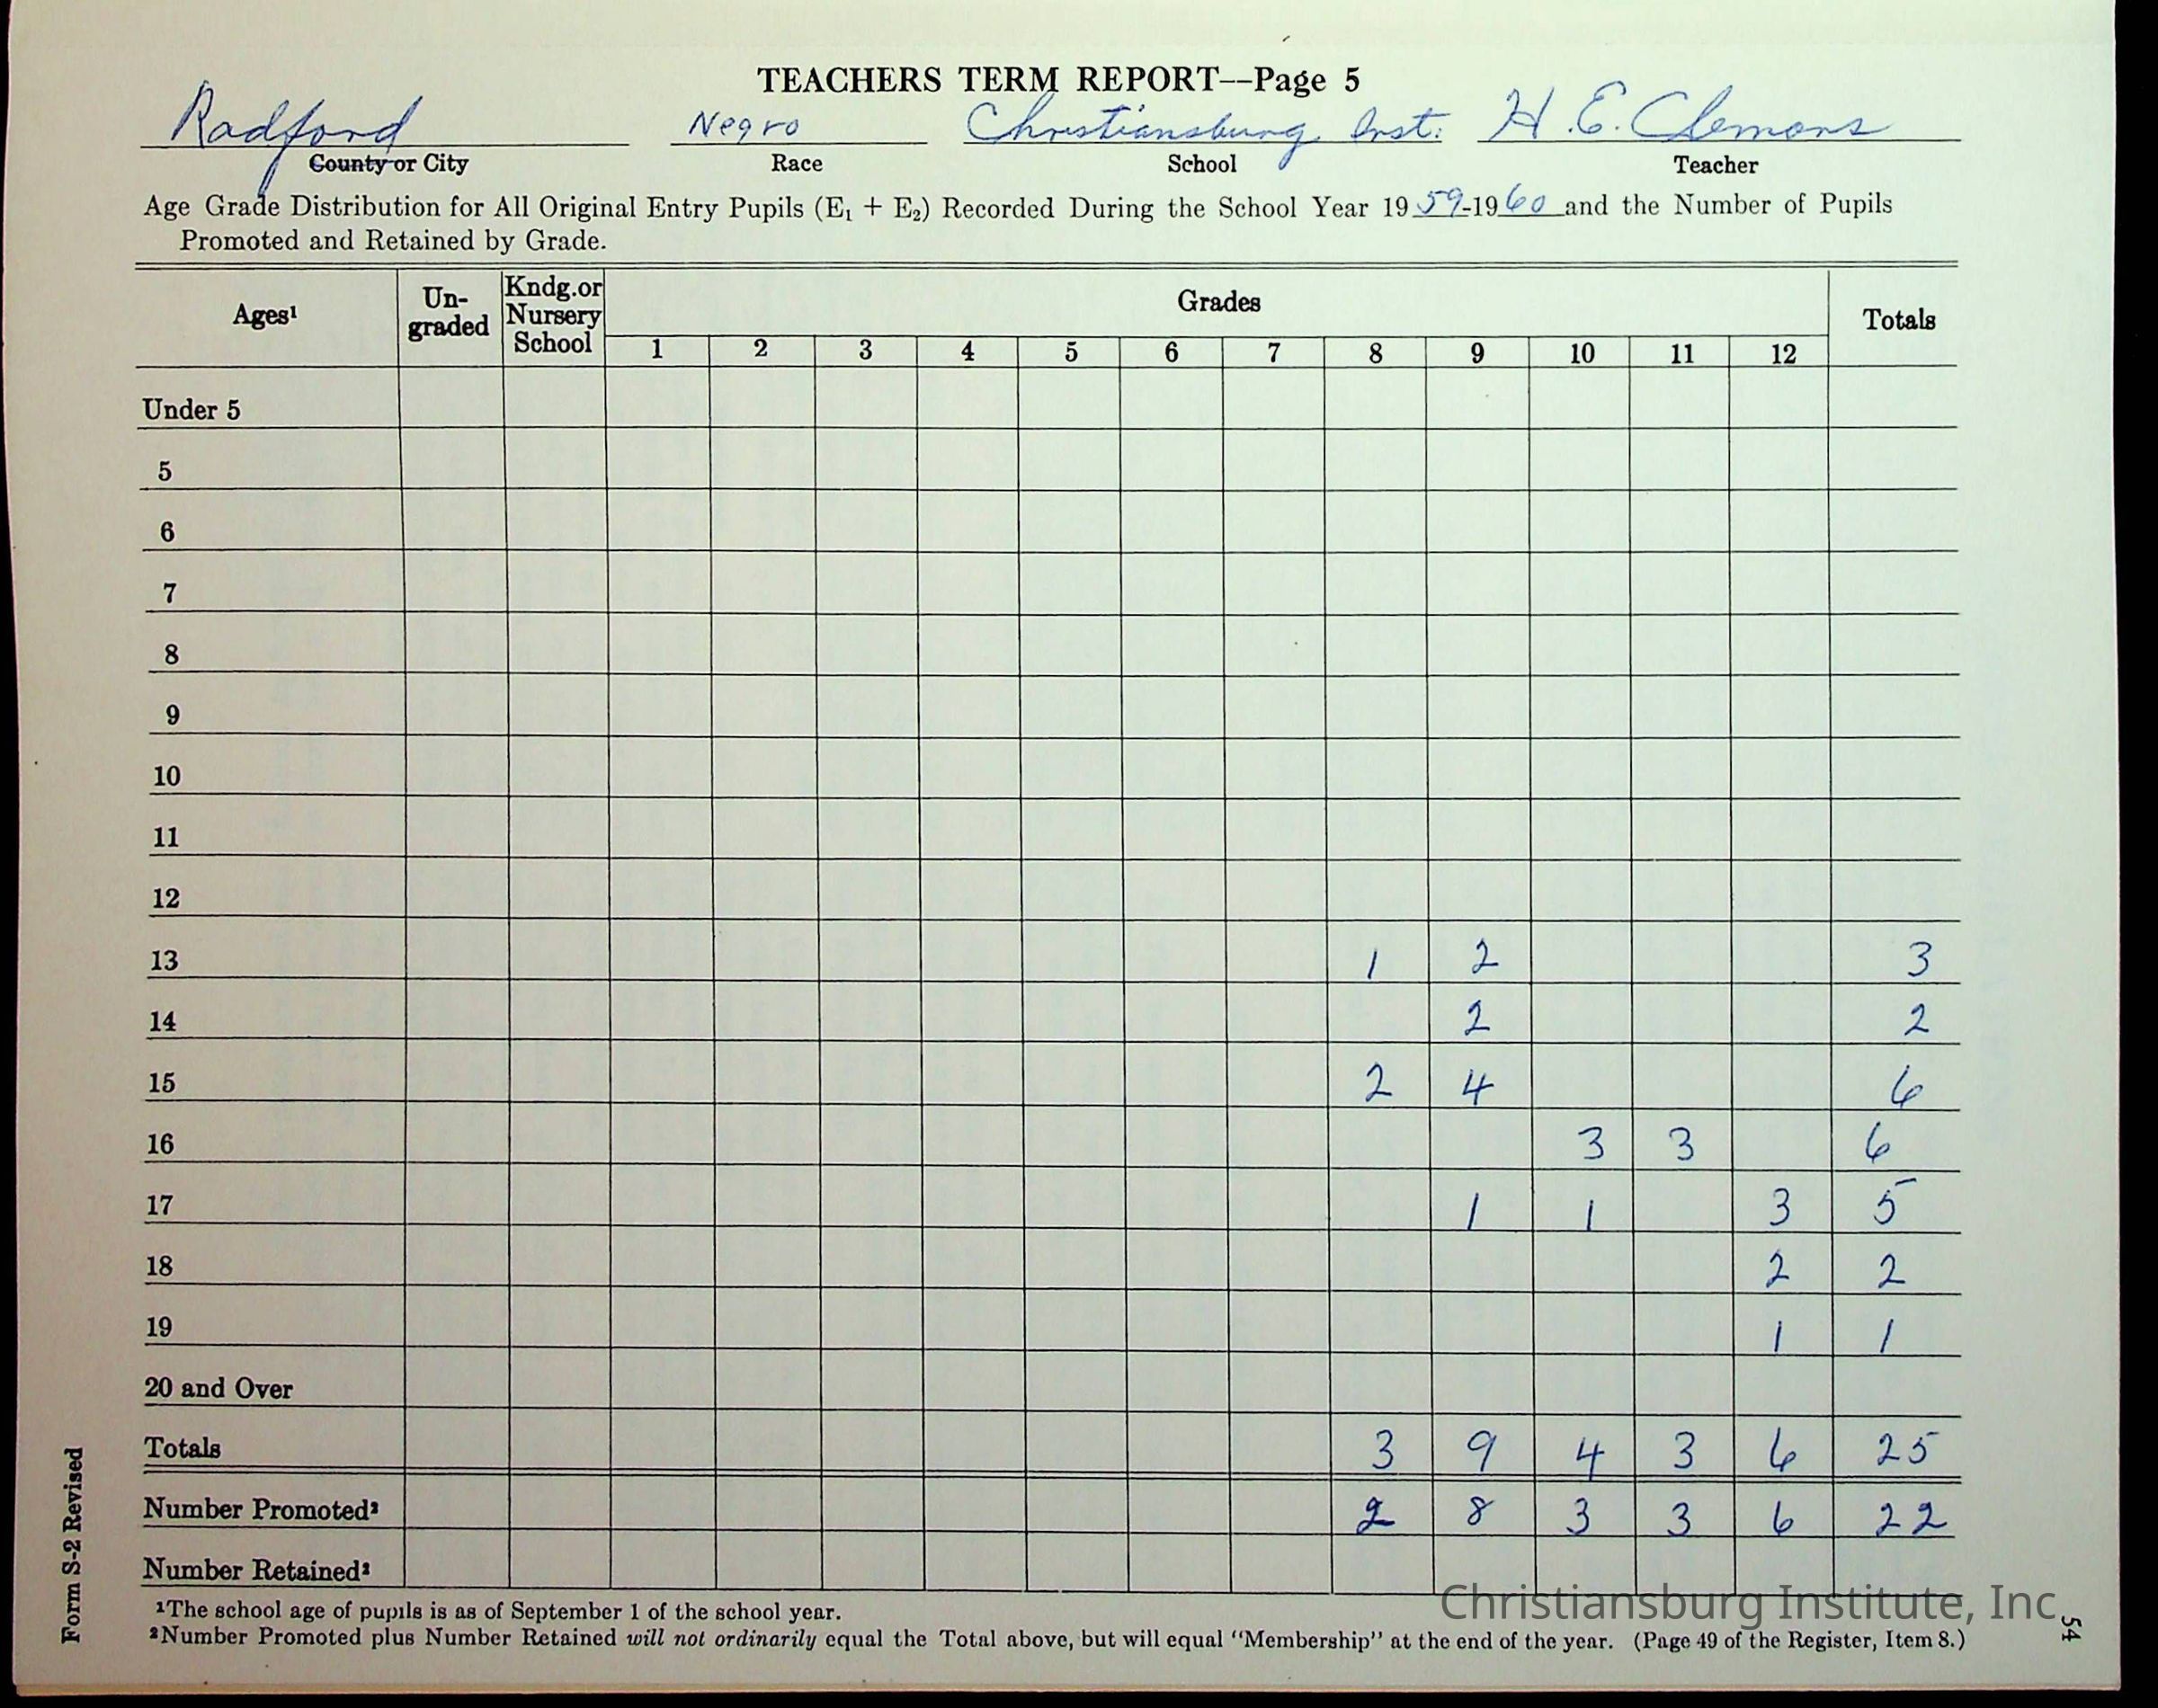 TEACHERS TERM REPORT--Page 5
Radford Negro Christiansburg Inst. H. E. Clemons
County or City Race School Teacher
Age Grade Distribution for All Original Entry Pupils (E₁ + E₂) Recorded During the School Year 1959-1960 and the Number of Pupils
Promoted and Retained by Grade.
Ages¹ Un-graded Kndg. or Nursery School Grades Totals
1 2 3 4 5 6 7 8 9 10 11 12
Under 5
5
6
7
8
9
10
11
12
13 1 2 3
14 2 2
15 2 4 6
16 3 3 6
17 1 1 3 5
18 2 2
19 1 1
20 and Over
Totals 3 9 4 3 6 25
Number Promoted² 2 8 3 3 6 22
Number Retained²
¹The school age of pupils is as of September 1 of the school year.
²Number Promoted plus Number Retained will not ordinarily equal the Total above, but will equal "Membership" at the end of the year. (Page 49 of the Register, Item 8.)
Form S-2 Revised
54
Christiansburg Institute, Inc